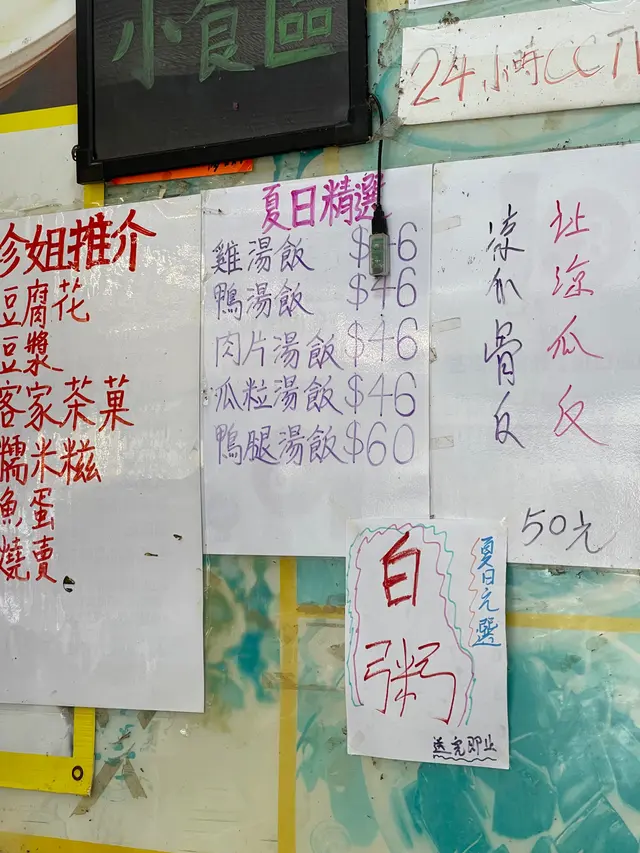 小食區
24小時CCTV
珍姐推介
豆腐花
豆漿
客家茶菓
糯米糍
魚蛋
燒賣
夏日精選
雞湯飯 $46
鴨湯飯 $46
肉片湯飯 $46
瓜粒湯飯 $46
鴨腿湯飯 $60
凉瓜骨反
凉瓜反
50元
白粥
夏日之選
送完即止